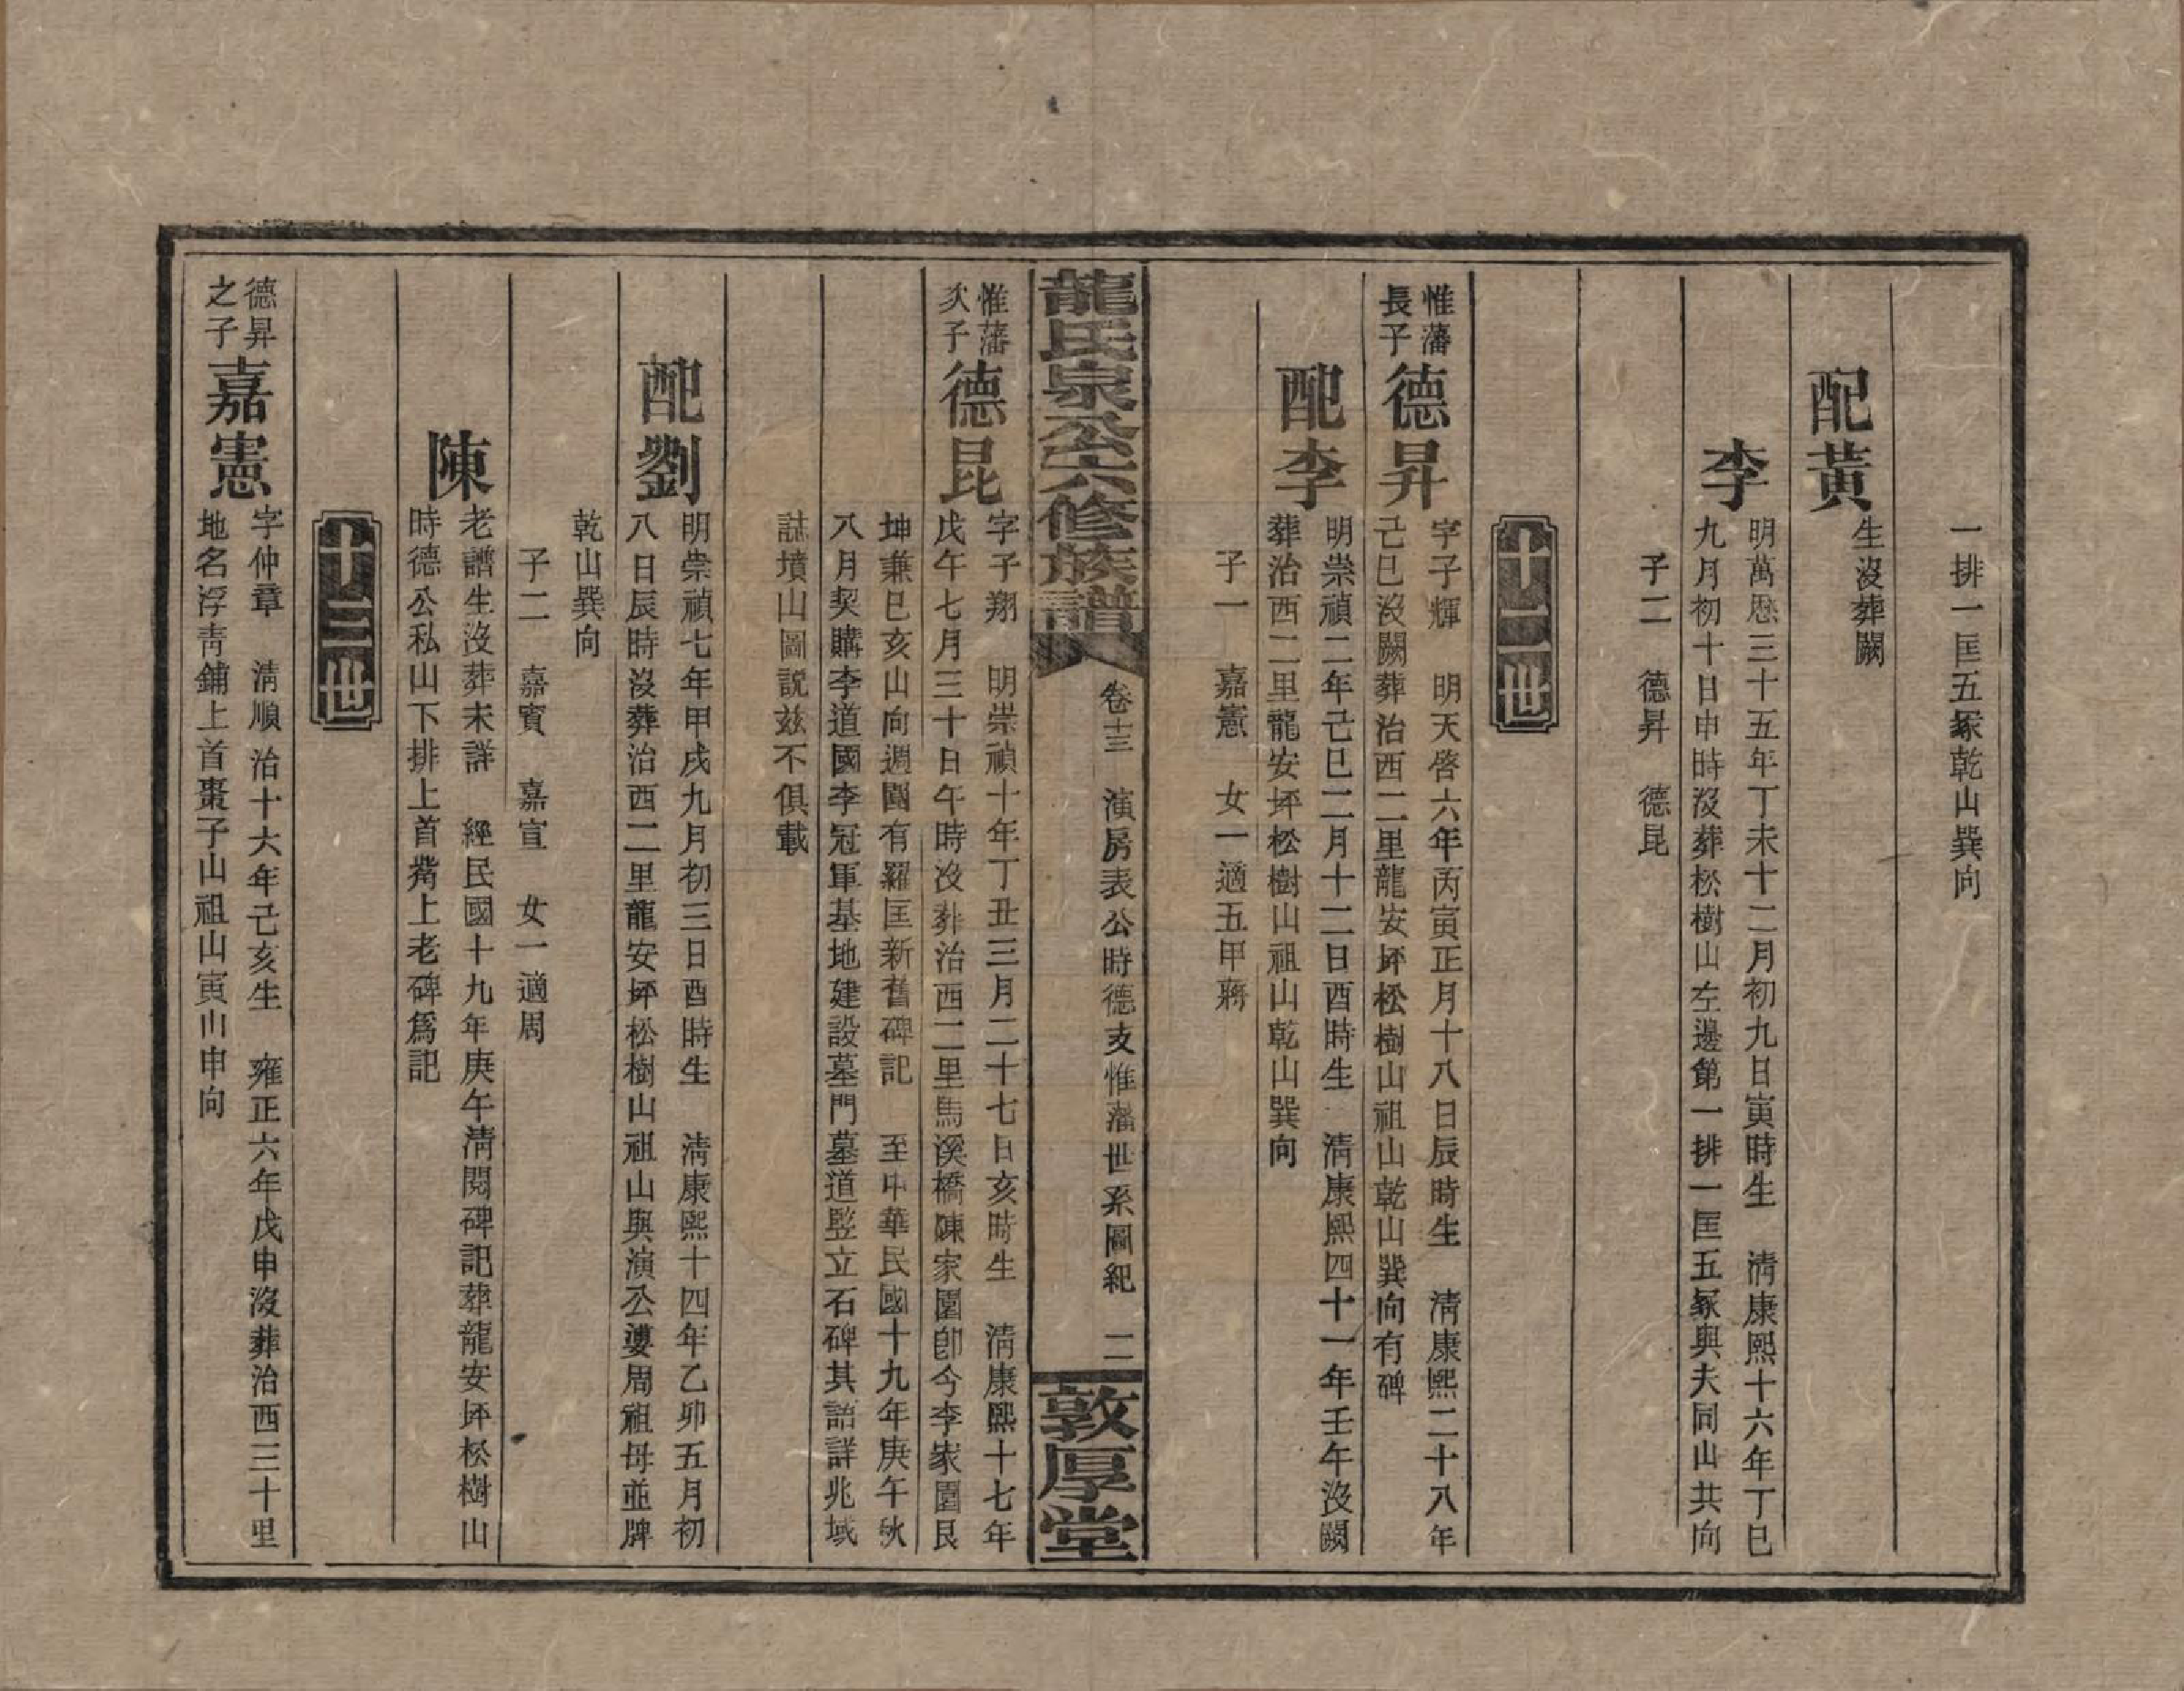 一排一匡五冢乾山巽向
配黃
生沒葬闕
李
明萬厯三十五年丁未十二月初九日寅時生　清康熙十六年丁巳
九月初十日申時沒葬松樹山左邊第一排一匡五冢與夫同山共向
子二　德昇　德昆
十二世
惟藩
長子
德昇
字子輝　明天啓六年丙寅正月十八日辰時生　清康熙二十八年
己巳沒闕葬治西二里龍安坪松樹山祖山乾山巽向有碑
配李
明崇禎二年己巳二月十二日酉時生　清康熙四十一年壬午沒闕
葬治西二里龍安坪松樹山祖山乾山巽向
子一　嘉憲　女一適五甲蔣
龍氏泉公六修族譜
卷十三　演房表公時德支惟藩世系圖紀　二
敦厚堂
惟藩
次子
德昆
字子翔　明崇禎十年丁丑三月二十七日亥時生　清康熙十七年
戊午七月三十日午時沒葬治西二里馬溪橋陳家園卽今李家園艮
坤兼巳亥山向週圍有羅匡新舊碑記　至中華民國十九年庚午秋
八月契購李道國李冠軍基地建設墓門墓道竪立石碑其詣詳兆域
誌墳山圖説玆不俱載
配劉
明崇禎七年甲戌九月初三日酉時生　清康熙十四年乙卯五月初
八日辰時沒葬治西二里龍安坪松樹山祖山與演公婆周祖母並牌
乾山巽向
子二　嘉賓　嘉宣　女一適周
陳
老譜生沒葬未詳　經民國十九年庚午淸閱碑記葬龍安坪松樹山
時德公私山下排上首嵴上老碑爲記
十三世
德昇
之子
嘉憲
字仲章　淸順治十六年己亥生　雍正六年戊申沒葬治西三十里
地名浮靑鋪上首棗子山祖山寅山申向